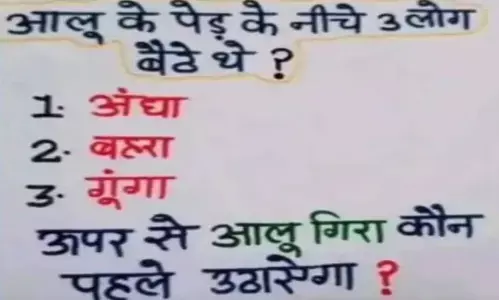 आलू के पेड़ के नीचे 3 लोग
बैठे थे ?
1. अंधा
2. बहरा
3. गूंगा
ऊपर से आलू गिरा कौन
पहले उठाऐगा ?